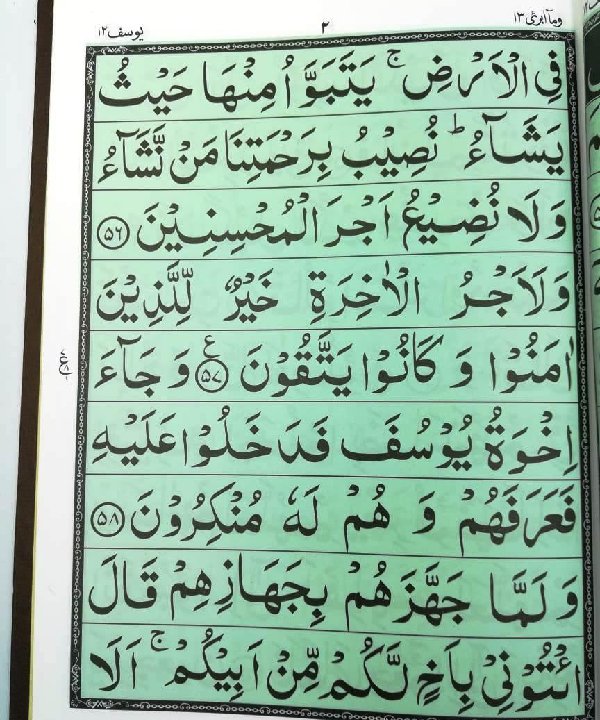 وما ابرئ ١٣
٢
يوسف ١٢
فِي الْاَرْضِ ۚ يَتَبَوَّاُ مِنْهَا حَيْثُ
يَشَآءُ ؕ نُصِيْبُ بِرَحْمَتِنَا مَنْ نَّشَآءُ
وَلَا نُضِيْعُ اَجْرَ الْمُحْسِنِيْنَ ۵۶
وَلَاَجْرُ الْاٰخِرَةِ خَيْرٌ لِّلَّذِيْنَ
اٰمَنُوْا وَ كَانُوْا يَتَّقُوْنَ ۵۷ ع وَ جَآءَ
اِخْوَةُ يُوْسُفَ فَدَخَلُوْا عَلَيْهِ
فَعَرَفَهُمْ وَ هُمْ لَهٗ مُنْكِرُوْنَ ۵۸
وَلَمَّا جَهَّزَهُمْ بِجَهَازِهِمْ قَالَ
ائْتُوْنِيْ بِاَخٍ لَّكُمْ مِّنْ اَبِيْكُمْ ۚ اَلَا